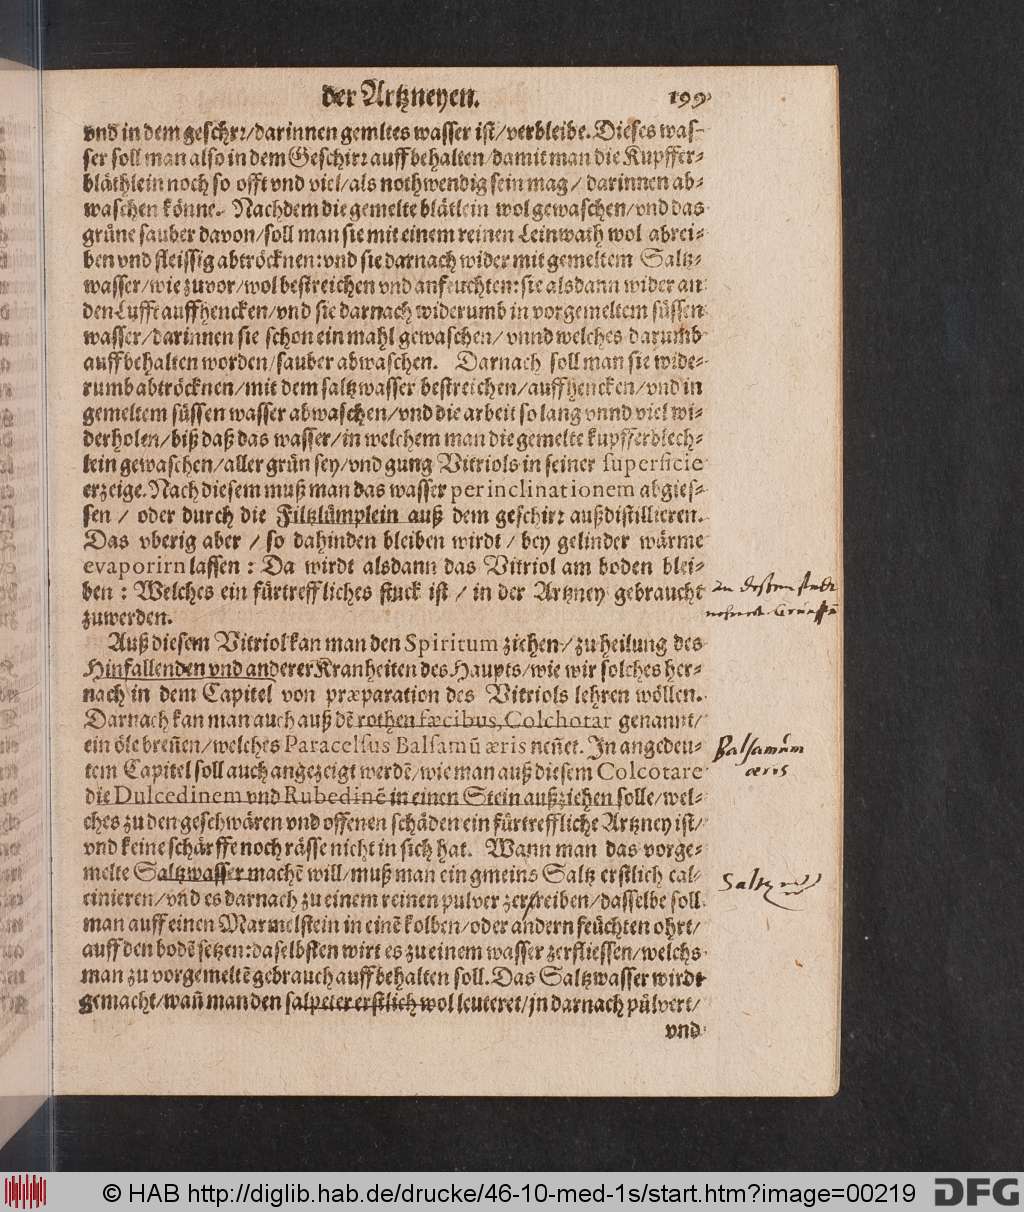 der Artzneyen. 199
vnd in dem geschrꝛ/darinnen gemltes wasser ist/verbleibe. Dieses was-
ser soll man also in dem Geschirꝛ auffbehalten/damit man die Kupffer-
bläthlein noch so offt vnd viel/als nothwendig sein mag/ darinnen ab-
waschen könne. Nachdem die gemelte blätlein wol gewaschen/vnd das
grüne sauber davon/soll man sie mit einem reinen Leinwath wol abrei-
ben vnd fleissig abtröcknen: vnd sie darnach wider mit gemeltem Saltz-
wasser/wie zuvor/wol bestreichen vnd anfeuchten: sie alsdann wider an
den Lufft auffhencken/vnd sie darnach widerumb in vorgemeltem süssen
wasser/darinnen sie schon ein mahl gewaschen/ vnnd welches darumb
auffbehalten worden/sauber abwaschen. Darnach soll man sie wide-
rumb abtröcknen/mit dem saltzwasser bestreichen/auffhencken/vnd in
gemeltem süssen wasser abwaschen/vnd die arbeit so lang vnnd viel wi-
derholen/biß daß das wasser/in welchem man die gemelte kupfferblech-
lein gewaschen/aller grün sey/vnd gung Vitriols in seiner superficie
erzeige. Nach diesem muß man das wasser per inclinationem abgies-
sen / oder durch die Filtzlämplein auß dem geschirꝛ außdistillieren.
Das vberig aber / so dahinden bleiben wirdt / bey gelinder wärme
evaporirn lassen : Da wirdt alsdann das Vitriol am boden blei-
ben : Welches ein fürtreffliches stuck ist / in der Artzney gebraucht
zuwerden.
Auß diesem Vitriol kan man den Spiritum ziehen/ zu heilung des
Hinfallenden vnd anderer Kranheiten des Haupts/wie wir solches her-
nach in dem Capitel von præparation des Vitriols lehren wöllen.
Darnach kan man auch auß dē rothen fæcibus, Colchotar genannt/
ein öle breñen/welches Paracelsus Balsamū æris neñet. In angedeu-
tem Capitel soll auch angezeigt werdē/wie man auß diesem Colcotare
die Dulcedinem vnd Rubedinē in einen Stein außziehen solle/wel-
ches zu den geschwären vnd offenen schäden ein fürtreffliche Artzney ist/
vnd keine schärffe noch rässe nicht in sich hat. Wann man das vorge-
melte Saltzwasser machē will/muß man ein gmeins Saltz erstlich cal-
cinieren/vnd es darnach zu einem reinen pulver zerreiben/dasselbe soll
man auff einen Marmelstein in einē kolben/oder andern feüchten ohrt/
auff den bodē setzen: daselbsten wirt es zu einem wasser zerfliessen/welchs
man zu vorgemeltē gebrauch auffbehalten soll. Das Saltzwasser wirdt
gemacht/wañ man den salpeter erstlich wol leuteret/jn darnach pülvert/
vnd
Balsamum
æris
© HAB http://diglib.hab.de/drucke/46-10-med-1s/start.htm?image=00219 DFG